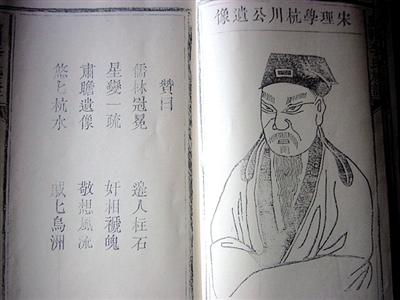 宋理學杭川公遺像
贊曰
儒林冠冕 人柱石
星變一疏 奸相褫魄
肅瞻遺像 敬想風流
悠匕杭水 戚匕烏洲